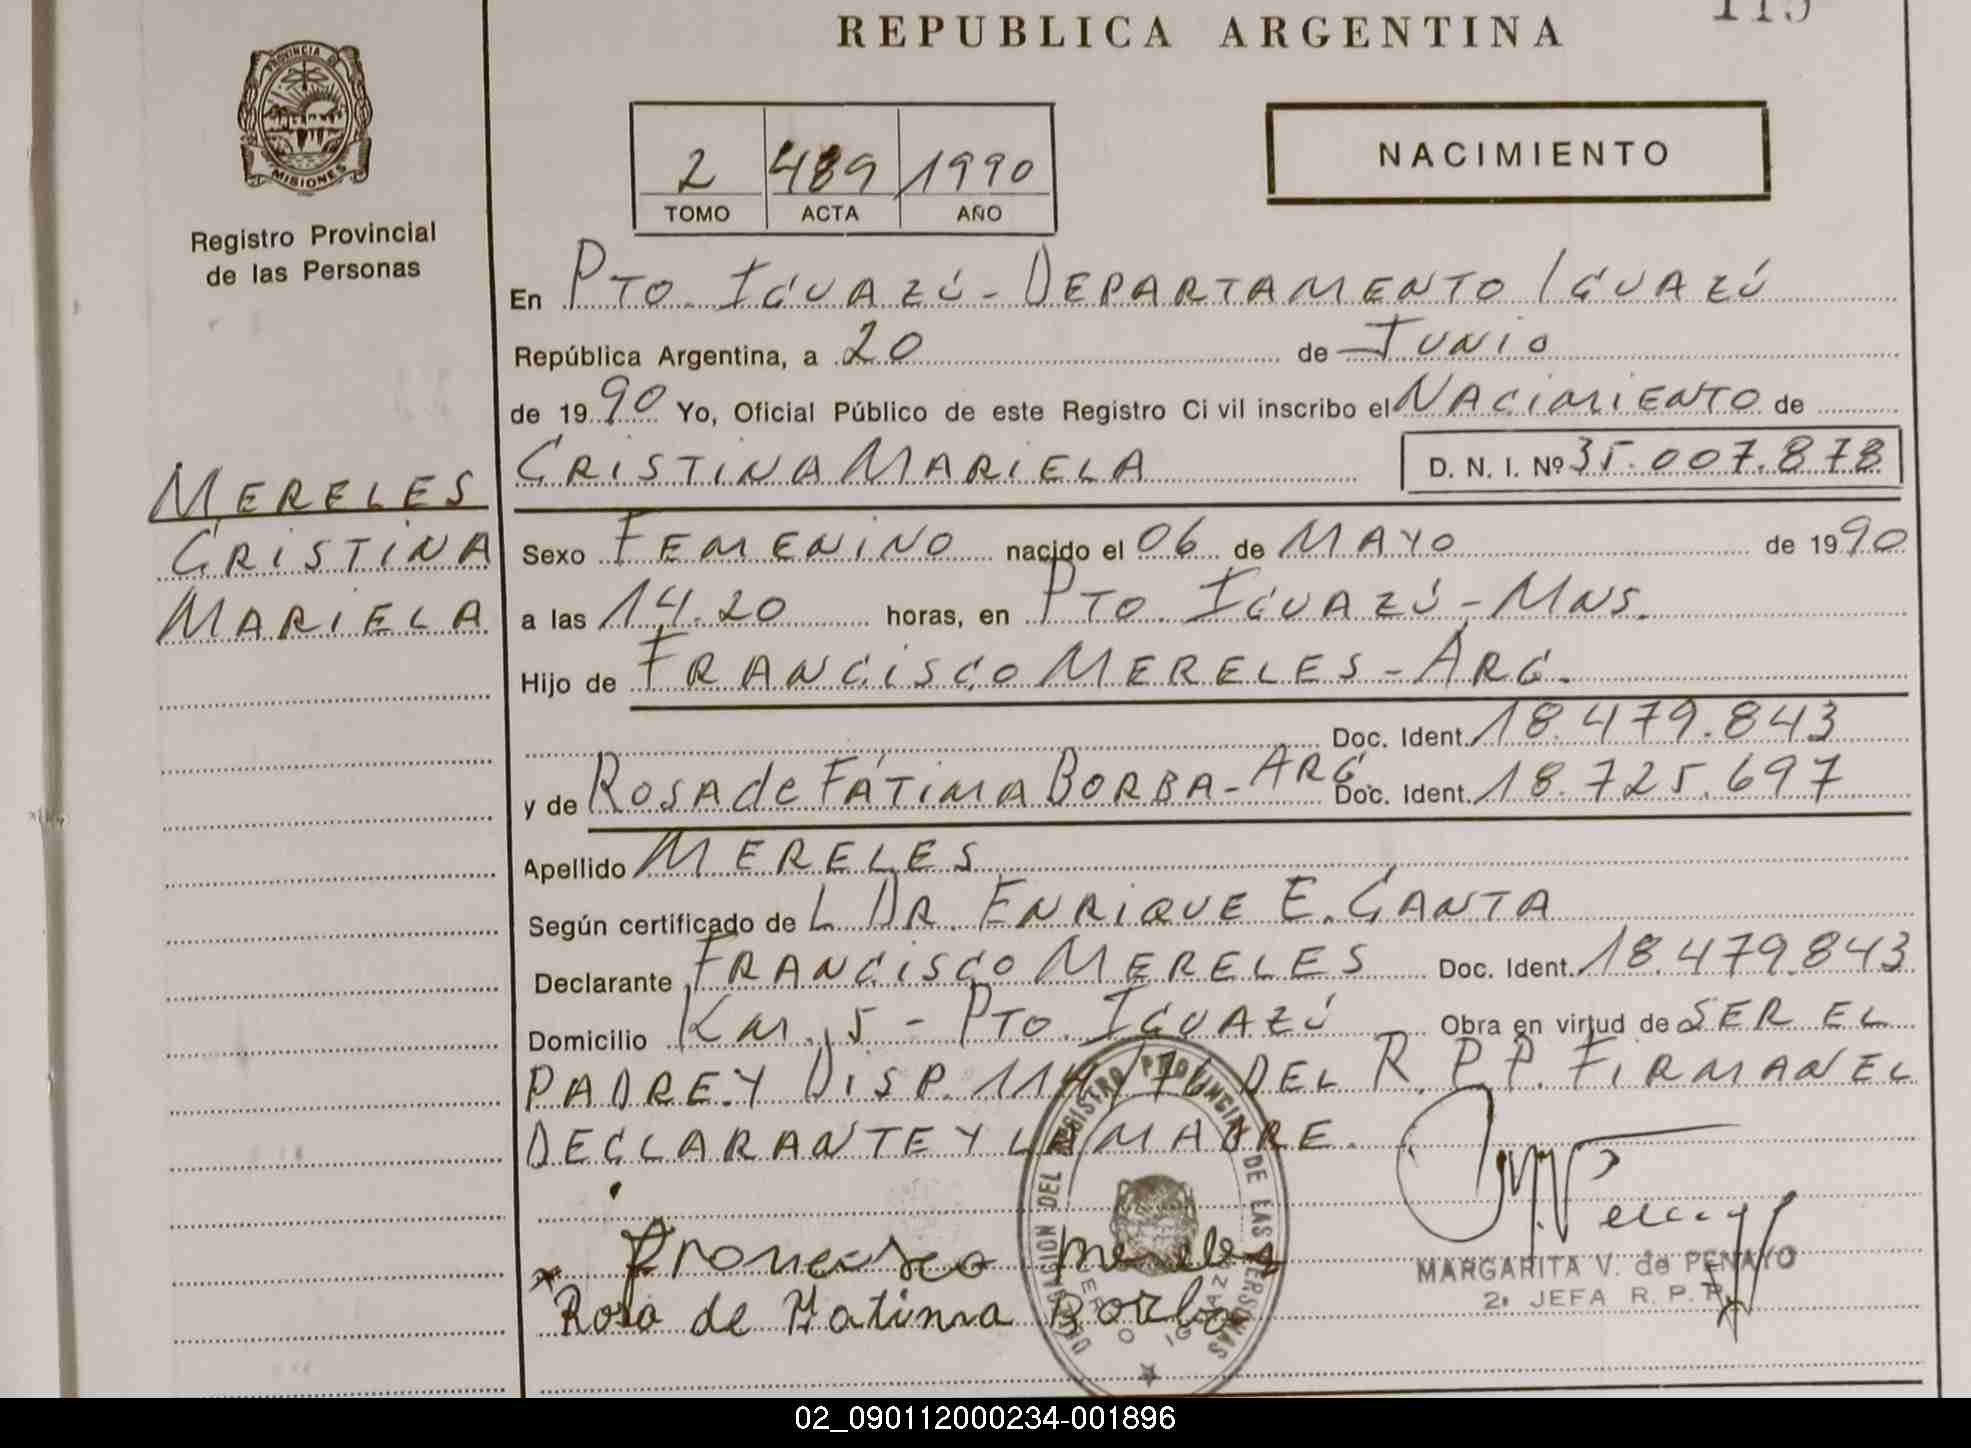 REPUBLICA ARGENTINA
PROVINCIA DE
MISIONES
Registro Provincial
de las Personas
2 489 1990
TOMO ACTA AÑO
NACIMIENTO
En PTO. IGUAZÚ - DEPARTAMENTO IGUAZÚ
República Argentina, a 20 de JUNIO
de 1990 Yo, Oficial Público de este Registro Ci vil inscribo el NACIMIENTO de
CRISTINA MARIELA D. N. I. Nº 35.007.878
MERELES
CRISTINA
MARIELA
Sexo FEMENINO nacido el 06 de MAYO de 1990
a las 14.20 horas, en PTO. IGUAZÚ - MNS.
Hijo de FRANCISCO MERELES - ARG.
Doc. Ident. 18.479.843
y de ROSA de FÁTIMA BORBA - ARG. Doc. Ident. 18.725.697
Apellido MERELES
Según certificado de L DR. ENRIQUE E. CANTA
Declarante FRANCISCO MERELES Doc. Ident. 18.479.843
Domicilio Km. 5 - PTO. IGUAZÚ Obra en virtud de SER EL
PADRE Y DISP. 114/76 DEL R.P.P. FIRMAN EL
DECLARANTE Y LA MADRE.
Rosa de Fatima Borba
MARGARITA V. de PENAYO
2a JEFA R. P. P.
DEL REGISTRO PROVINCIAL DE LAS PERSONAS
02_090112000234-001896